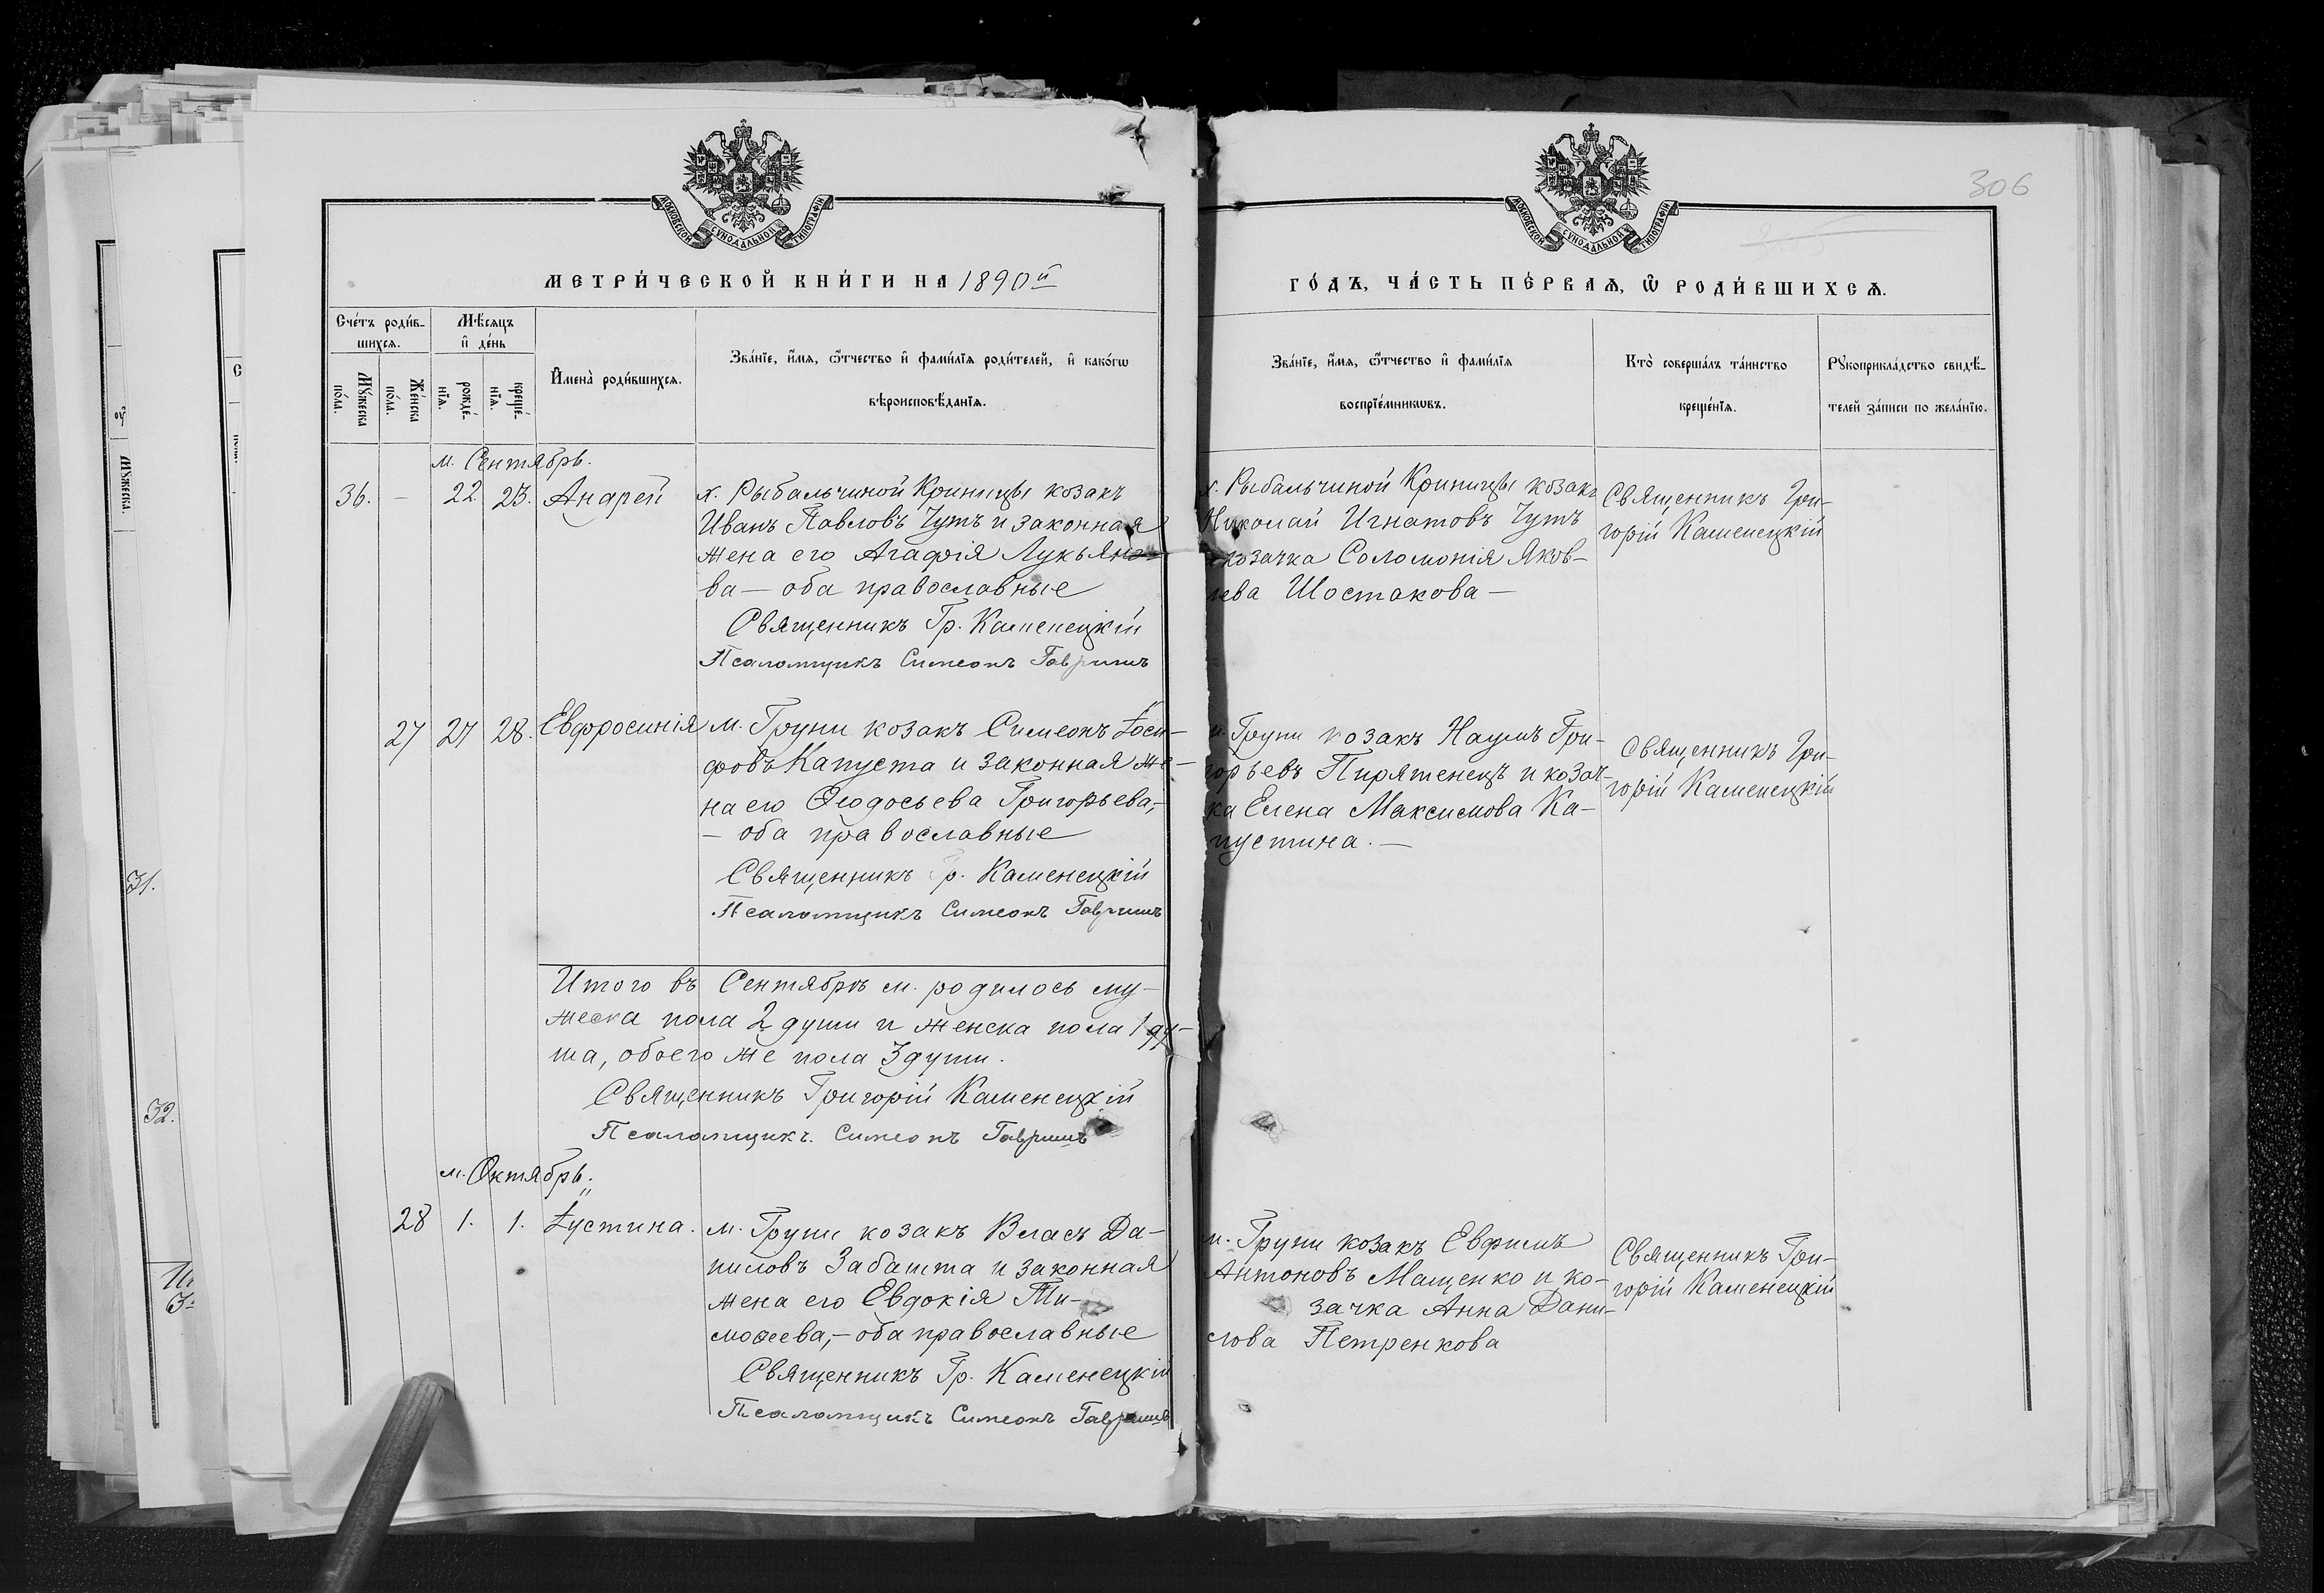 306
МОСКОВСКОЙ СУНОДАЛЬНОЙ ТИПОГРАФІИ
МОСКОВСКОЙ СУНОДАЛЬНОЙ ТИПОГРАФІИ
МЕТРИ́ЧЕСКОЙ КНИ́ГИ НА 1890й
ГО́ДЪ, ЧА́СТЬ ПЕ́РВАѦ, Ѡ҆ РОДИ́ВШИХСѦ.
Счéтъ роди́в-
шихсѧ.
Мꙋ́жеска
по́ла.
Же́нска
по́ла.
Мѣ́сѧцъ
и҆ де́нь
рожде́-
нїѧ.
креще́-
нїѧ.
И҆мена̀ роди́вшихсѧ.
Зва́нїе, и҆́мѧ, ѻ҆́тчество и҆ фами́лїѧ роди́телей, и҆ како́гѡ
вѣроисповѣ́данїѧ.
Зва́нїе, и҆́мѧ, ѻ҆́тчество и҆ фами́лїѧ
воспрїе́мникѡвъ.
Кто̀ соверша́лъ та́инство
креще́нїѧ.
Рꙋкоприкла́дство свидѣ́-
телей за́писи по жела́нїю.
м. Сентябрь.
36. — 22. 23. Андрей
х. Рыбальчиной Криницы козакъ
Иванъ Павловъ Чутъ и законная
жена его Агафія Лукьяно-
ва — оба православные
Священникъ Гр. Каменецкій
Псаломщикъ Симеонъ Гавришъ
х. Рыбальчиной Криницы козакъ
Николай Игнатовъ Чутъ
и козачка Соломонія Яков-
лева Шостакова —
Священникъ Гри-
горій Каменецкій
27 27 28. Евфросинія
м. Груни козакъ Симеонъ Іоси-
фовъ Капуста и законная же-
на его Ѳеодосьева Григорьева,-
— оба православные
Священникъ Гр. Каменецкій
Псаломщикъ Симеонъ Гавришъ
м. Груни козакъ Наумъ Гри-
горьевъ Пирятенецъ и козач-
ка Елена Максимова Ка-
пустина. —
Священникъ Гри-
горій Каменецкій
Итого въ Сентябрѣ м. родилось му-
жеска пола 2 души и женска пола 1 ду-
ша, обоего же пола 3 души.
Священникъ Григорій Каменецкій
Псаломщикъ Симеонъ Гавришъ
м. Октябрь.
28 1. 1. Іустина.
м. Груни козакъ Власъ Да-
ниловъ Забашта и законная
жена его Евдокія Ти-
моѳеева,- оба православные
Священникъ Гр. Каменецкій
Псаломщикъ Симеонъ Гавришъ
м. Груни козакъ Евфимъ
Антоновъ Мащенко и ко-
зачка Анна Дани-
лова Петренкова
Священникъ Гри-
горій Каменецкій
Мꙋжеска.
31.
32.